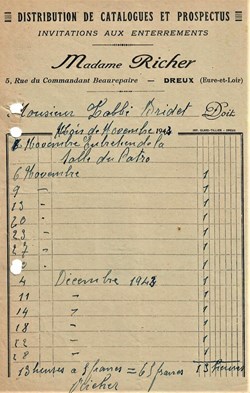 DISTRIBUTION DE CATALOGUES ET PROSPECTUS
INVITATIONS AUX ENTERREMENTS
Madame Richer
5, Rue du Commandant Beaurepaire — DREUX (Eure-et-Loir)
Monsieur l'abbé Bridet Doit
Mois de Novembre 1943
Novembre Entretien de la
Salle du Patro
6 Novembre 1
9 " 1
13 " 1
20 " 1
23 " 1
27 " 1
" 1
4 Décembre 1943 1
11 " 1
14 " 1
18 " 1
22 " 1
28 " 1
13 heures à 5 francs = 65 francs 13 heures
Richer